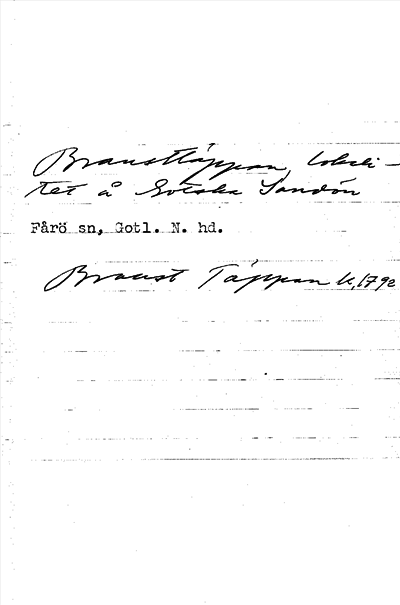 Brausttäppan, lokali-
tet å Gotska Sandön
Fårö sn, Gotl. N. hd.
Braust Täppan k, 1792